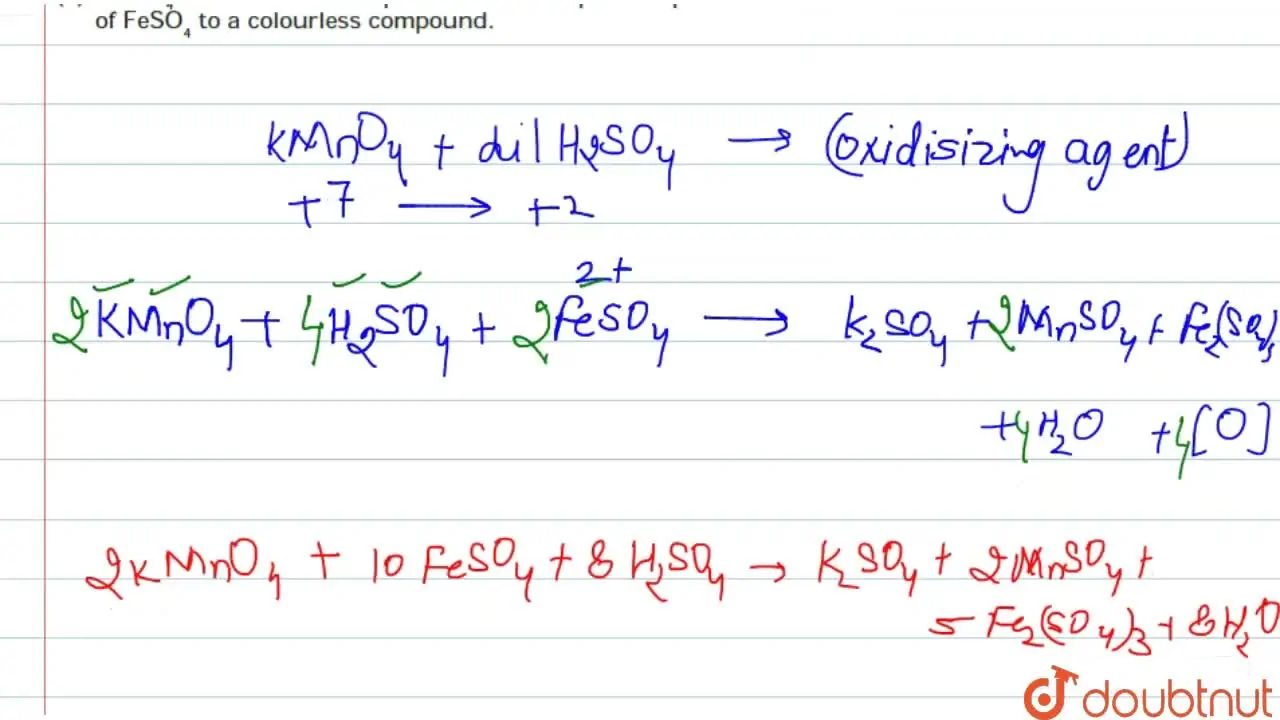 of FeSO₄ to a colourless compound.
KMnO₄ + dil H₂SO₄ → (oxidisizing agent)
+7 → +2
2+
2KMnO₄ + 4H₂SO₄ + 2FeSO₄ → K₂SO₄ + 2MnSO₄ + Fe₂(SO₄)₃
+4H₂O + 4[O]
2KMnO₄ + 10 FeSO₄ + 8 H₂SO₄ → K₂SO₄ + 2MnSO₄ +
5 Fe₂(SO₄)₃ + 8H₂O
doubtnut